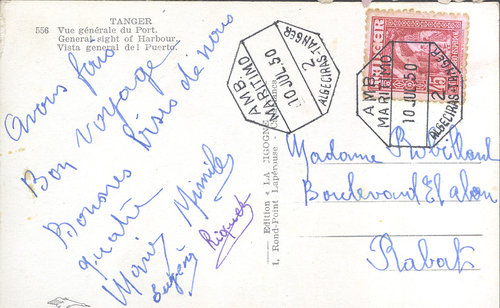 TANGER
556 Vue générale du Port.
General sight of Harbour.
Vista general del Puerto.
Avons fait
Bon voyage
Bonores Bises de nous
quatre
Marie Mimile
Eugène Riquet
Edition "LA CIGOGNE"
1, Rond-Point Lapérouse
AMB.
MARITIMO
10 JUL 50
2
ALGECIRAS-TANGER
TANGER
AMB.
MARITIMO
10 JUL 50
2
ALGECIRAS-TANGER
Madame Robillard
Boulevard El alou
Rabat